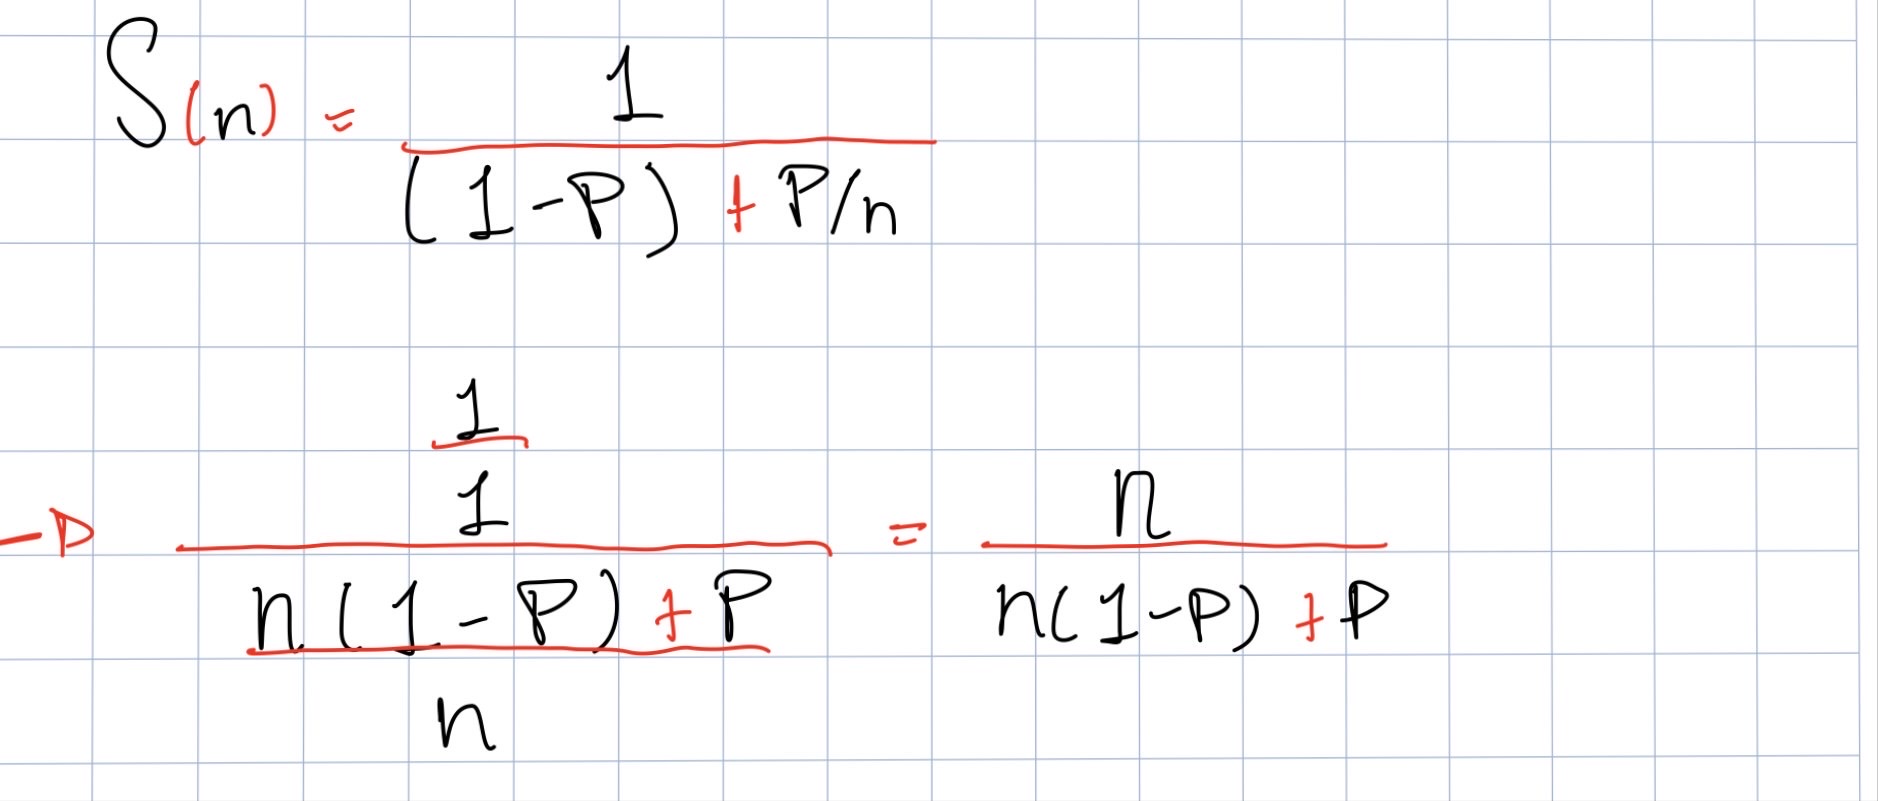 S(n) = 1
(1-P) + P/n
1
1
n(1-P) + P = n
n n(1-P) + P